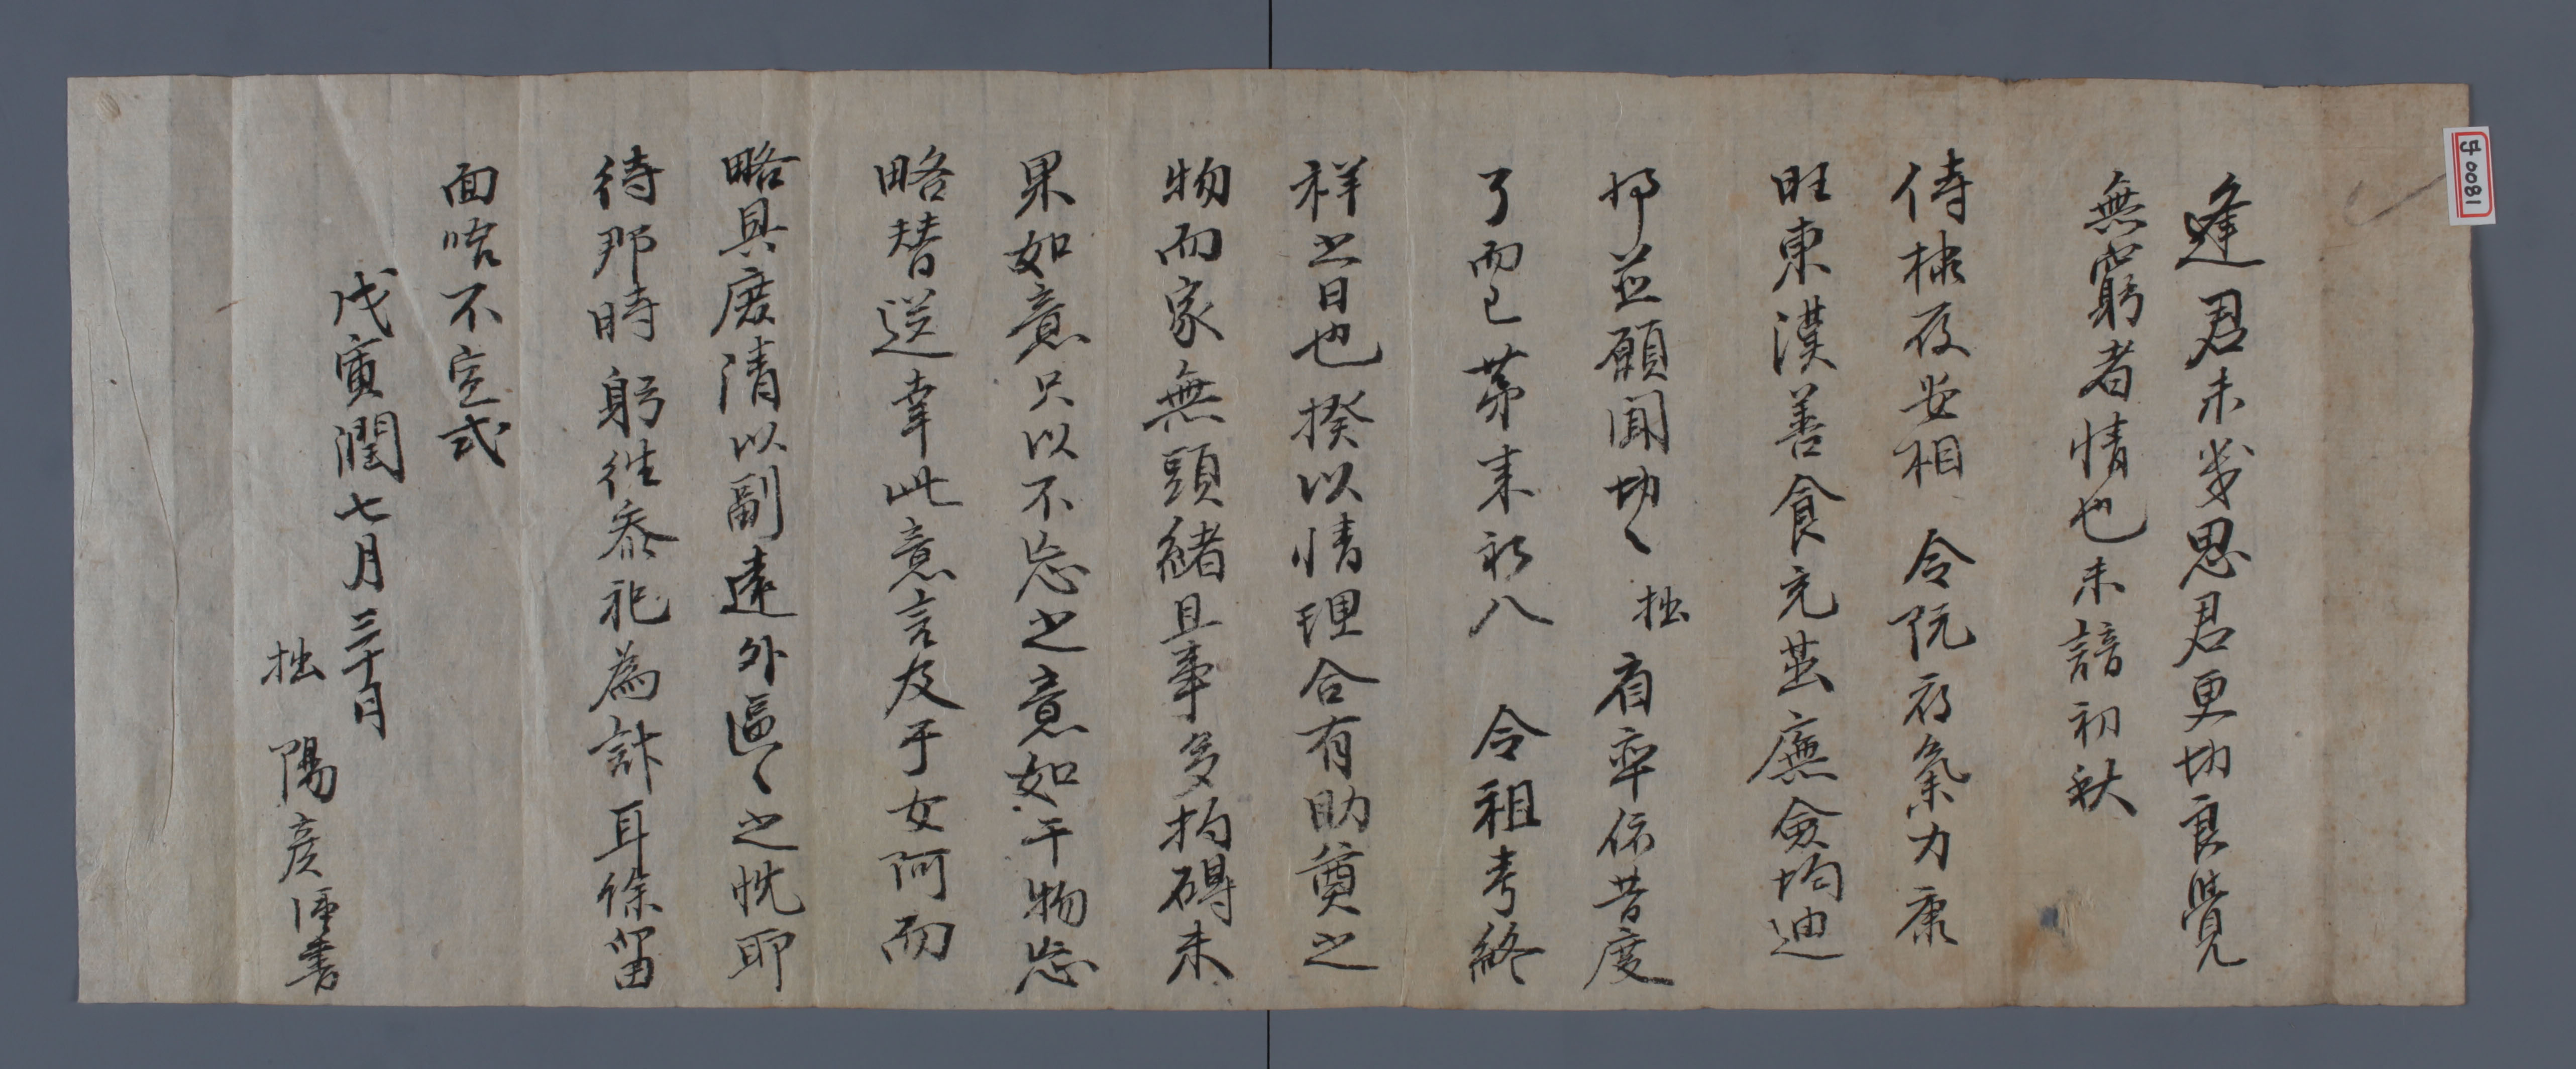 逢君未幾思君更切良覺
無窮者情也未諳初秋
侍棣履安相 令阮府氣力康
旺東漢善食充茁廉儉均迪
耶並願聞切〃 拙 省率依昔度
了而已 苐來初八 令祖考終
祥之日也 揆以情理合有助奠之
物而家無頭緒且事多拘碍未
果如意只以不忘之意如干物忘
略替送幸此意言及于女阿而
略具庶清以副遠外區〃之忱耶
待那時躬徃叅祀為計耳餘留
面唔不宣式
戊寅潤七月三十日
拙 陽彦 書
子0081